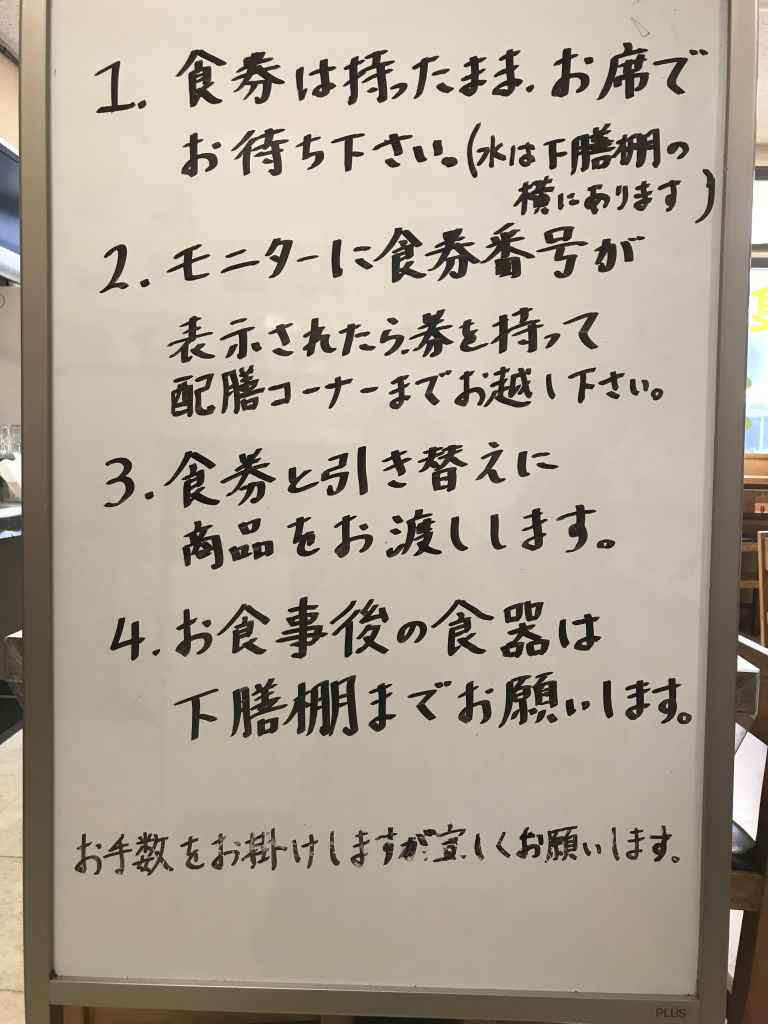 1. 食券は持ったまま、お席で
お待ち下さい。(水は下膳棚の
横にあります)
2. モニターに食券番号が
表示されたら、券を持って
配膳コーナーまでお越し下さい。
3. 食券と引き替えに
商品をお渡しします。
4. お食事後の食器は
下膳棚までお願いします。
お手数をお掛けしますが宜しくお願いします。
PLUS